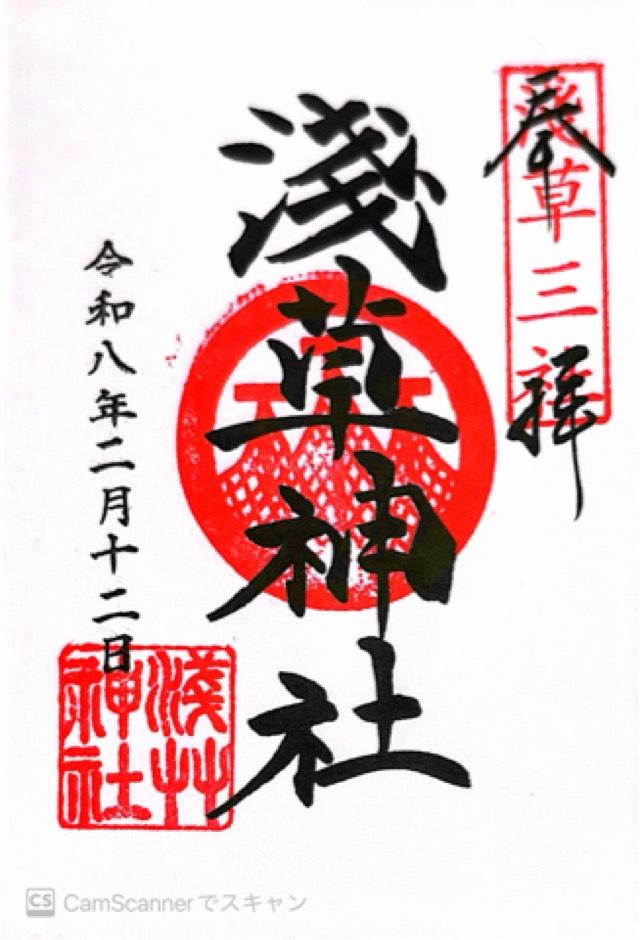 奉拝
草三
淺草神社
令和八年二月十二日
淺艸
神社
CS CamScannerでスキャン